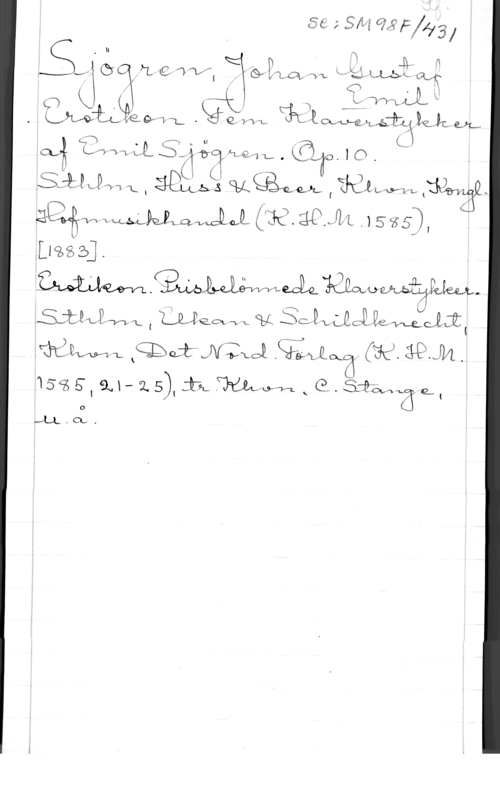 se: SM98F/431
Sjögren, Johan Gustaf
Emil
Erotikon. Fem Klaverstykker
af Emil Sjögren. Op. 10.
Sthlm, Huss & Beer, Khvn, Kongl.
Hofmusikhandel (K.H.M. 1585),
[1883].
Erotikon. Prisbelönnede Klaverstykker.
Sthlm, Elkan & Schildknecht,
Khvn, Det Nord. Forlag (K.H.M.
1585, 21-25), tr. Khvn. C. Stange,
u.å.